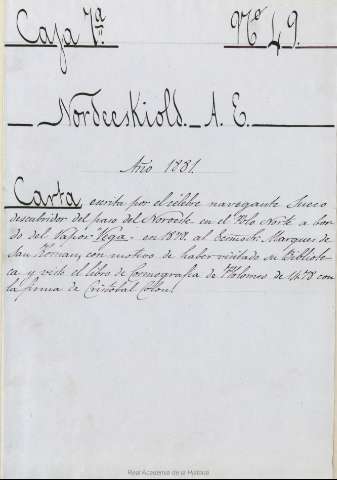 Caja 7ª. Nº 49.
Nordeeskiold._ A. E.
Año 1881.
Carta escrita por el célebre navegante Sueco
descubridor del paso del Noroeste en el Polo Norte a bor-
do del Vapor Vega - en 1878. al Marques de
San Roman, con motivo de haber visitado su Bibliote-
ca y visto el libro de Cosmografia de Ptolomeo de 1478 con
la firma de Cristobal Colon.
Real Academia de la Historia